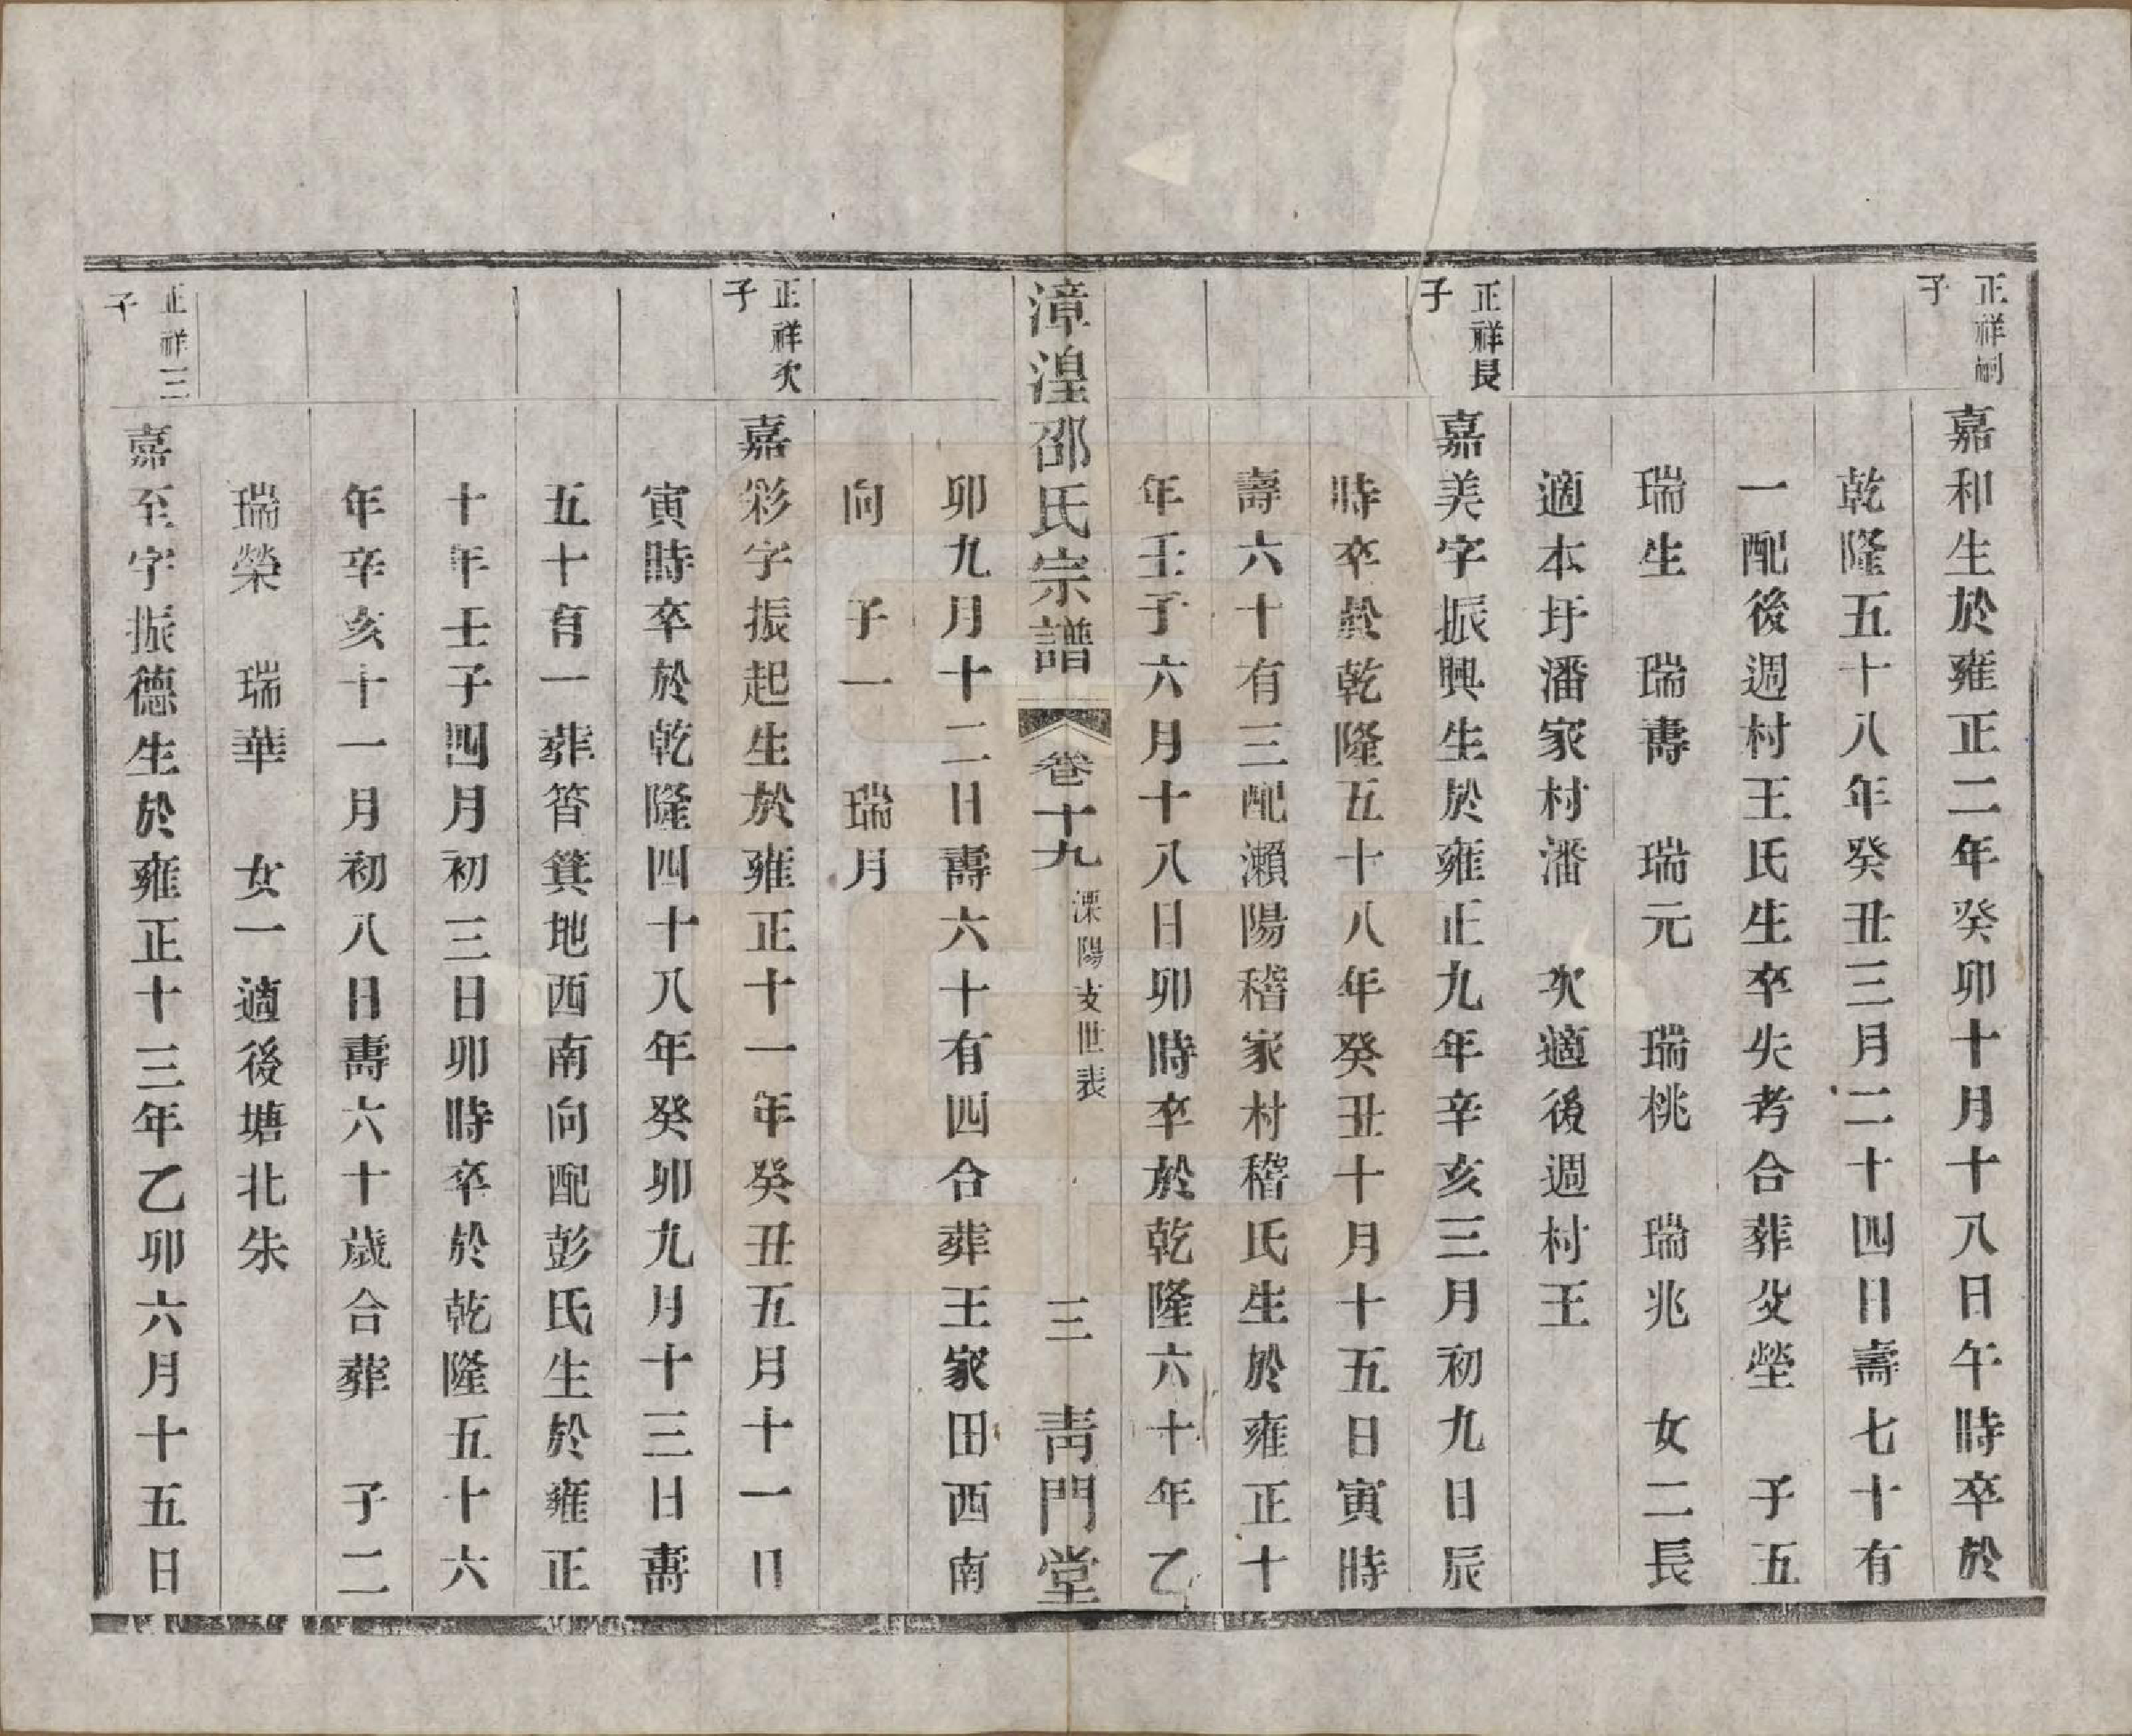 正祥嗣
子
嘉和生於雍正二年癸卯十月十八日午時卒於
乾隆五十八年癸丑三月二十四日壽七十有
一配後週村王氏生卒失考合葬父塋　子五
瑞生　瑞壽　瑞元　瑞桃　瑞兆　女二長
適本圩潘家村潘　次適後週村王
正祥長
子
嘉美字振興生於雍正九年辛亥三月初九日辰
時卒於乾隆五十八年癸丑十月十五日寅時
壽六十有三配瀨陽稽家村稽氏生於雍正十
年壬子六月十八日卯時卒於乾隆六十年乙
漳湟邵氏宗譜　卷十九　溧陽支世表　三　靑門堂
卯九月十二日壽六十有四合葬王家田西南
向　子一　瑞月
正祥次
子
嘉彩字振起生於雍正十一年癸丑五月十一日
寅時卒於乾隆四十八年癸卯九月十三日壽
五十有一葬筲箕地西南向配彭氏生於雍正
十年壬子四月初三日卯時卒於乾隆五十六
年辛亥十一月初八日壽六十歲合葬　子二
瑞榮　瑞華　女一適後塘北朱
正祥三
子
嘉至字振德生於雍正十三年乙卯六月十五日